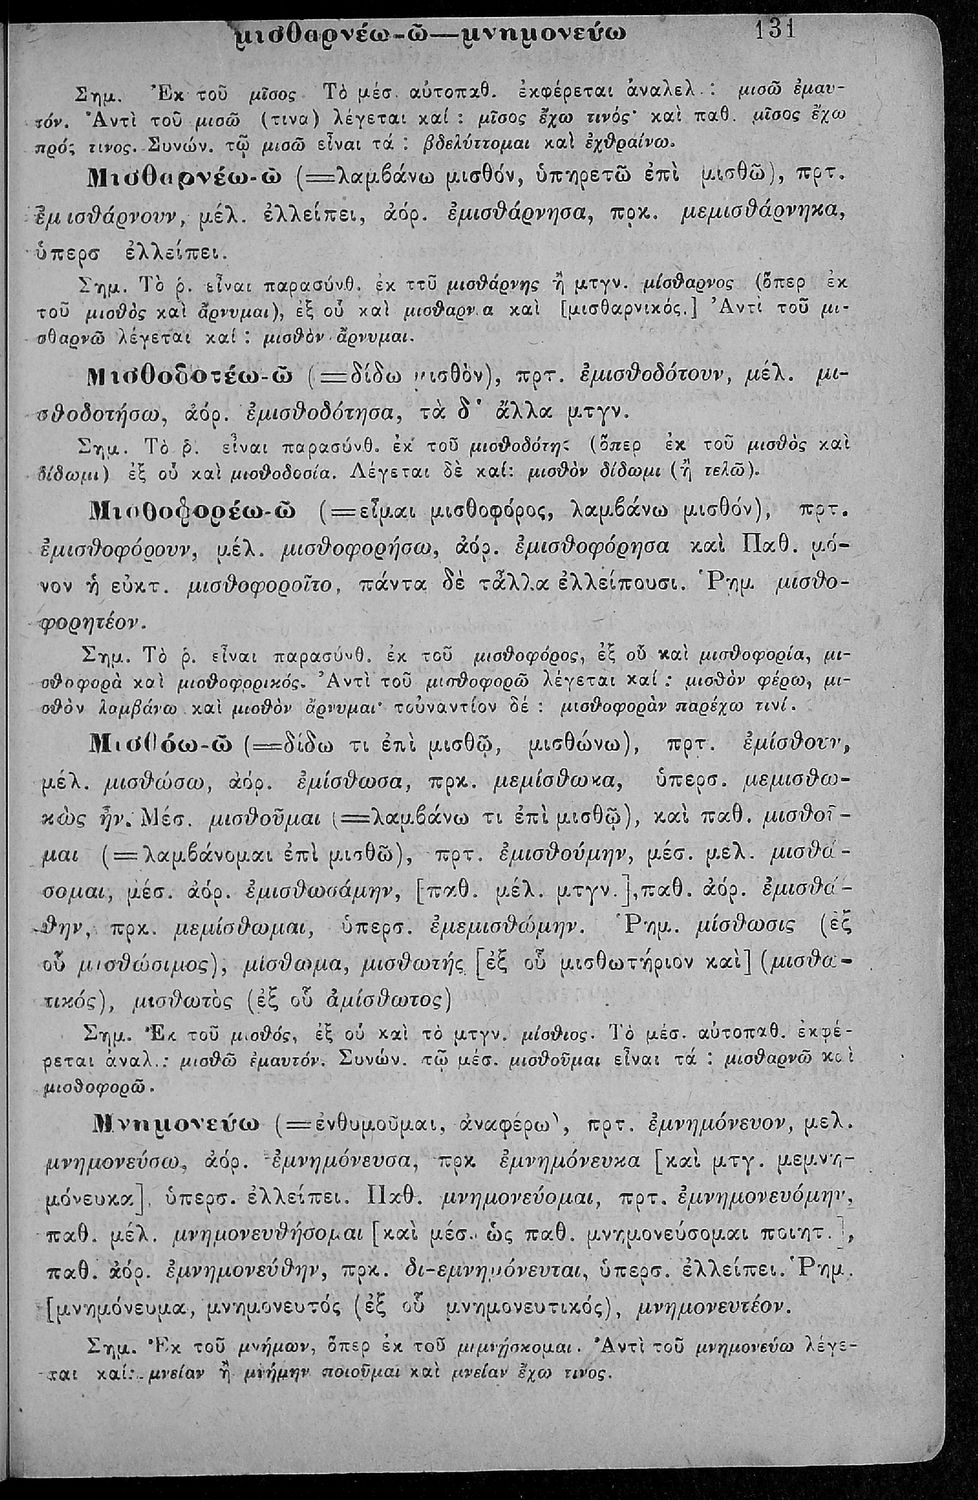 μισθαρνέω-ῶ—μνημονεύω 131
Σημ. Ἐκ τοῦ μῖσος Τὸ μέσ. αὐτοπαθ. ἐκφέρεται ἀναλελ. : μισῶ ἐμαυ-
τόν. Ἀντὶ τοῦ μισῶ (τινα) λέγεται καί : μῖσος ἔχω τινός· καὶ παθ. μῖσος ἔχω
πρός τινος. Συνών. τῷ μισῶ εἶναι τά : βδελύττομαι καὶ ἐχθραίνω.
Μισθαρνέω-ῶ (=λαμβάνω μισθόν, ὑπηρετῶ ἐπὶ μισθῶ), πρτ.
ἐμισθάρνουν, μέλ. ἐλλείπει, ἀόρ. ἐμισθάρνησα, πρκ. μεμισθάρνηκα,
ὑπερσ ἐλλείπει.
Σημ. Τὸ ῥ. εἶναι παρασύνθ. ἐκ τοῦ μισθάρνης ἢ μτγν. μίσθαρνος (ὅπερ ἐκ
τοῦ μισθὸς καὶ ἄρνυμαι), ἐξ οὗ καὶ μισθαρν.α καὶ [μισθαρνικός.] Ἀντὶ τοῦ μι-
σθαρνῶ λέγεται καί : μισθὸν ἄρνυμαι.
Μισθοδοτέω-ῶ (=δίδω μισθὸν), πρτ. ἐμισθοδότουν, μέλ. μι-
σθοδοτήσω, ἀόρ. ἐμισθοδότησα, τὰ δ' ἄλλα μτγν.
Σημ. Τὸ ῥ. εἶναι παρασύνθ. ἐκ τοῦ μισθοδότης (ὅπερ ἐκ τοῦ μισθὸς καὶ
δίδωμι) ἐξ οὗ καὶ μισθοδοσία. Λέγεται δὲ καί: μισθὸν δίδωμι (ἢ τελῶ).
Μισθοφορέω-ῶ (=εἶμαι μισθοφόρος, λαμβάνω μισθόν), πρτ.
ἐμισθοφόρουν, μέλ. μισθοφορήσω, ἀόρ. ἐμισθοφόρησα καὶ Παθ. μό-
νον ἡ εὐκτ. μισθοφοροῖτο, πάντα δὲ τἆλλα ἐλλείπουσι. Ῥημ. μισθο-
φορητέον.
Σημ. Τὸ ῥ. εἶναι παρασύνθ. ἐκ τοῦ μισθοφόρος, ἐξ οὗ καὶ μισθοφορία, μι-
σθοφορὰ καὶ μισθοφορικός. Ἀντὶ τοῦ μισθοφορῶ λέγεται καί : μισθὸν φέρω, μι-
σθὸν λαμβάνω καὶ μισθὸν ἄρνυμαι· τοὐναντίον δέ : μισθοφορὰν παρέχω τινί.
Μισθόω-ῶ (=δίδω τι ἐπὶ μισθῷ, μισθώνω), πρτ. ἐμίσθουν,
μέλ. μισθώσω, ἀόρ. ἐμίσθωσα, πρκ. μεμίσθωκα, ὑπερσ. μεμισθω-
κὼς ἦν. Μέσ. μισθοῦμαι (=λαμβάνω τι ἐπὶ μισθῷ), καὶ παθ. μισθοῦ-
μαι (=λαμβάνομαι ἐπὶ μισθῶ), πρτ. ἐμισθούμην, μέσ. μελ. μισθώ-
σομαι, μέσ. ἀόρ. ἐμισθωσάμην, [παθ. μέλ. μτγν.], παθ. ἀόρ. ἐμισθώ-
θην, πρκ. μεμίσθωμαι, ὑπερσ. ἐμεμισθώμην. Ῥημ. μίσθωσις (ἐξ
οὗ μισθώσιμος), μίσθωμα, μισθωτής [ἐξ οὗ μισθωτήριον καὶ] (μισθω-
τικός), μισθωτὸς (ἐξ οὗ ἀμίσθωτος)
Σημ. Ἐκ τοῦ μισθός, ἐξ οὗ καὶ τὸ μτγν. μίσθιος. Τὸ μέσ. αὐτοπαθ. ἐκφέ-
ρεται ἀναλ.: μισθῶ ἐμαυτόν. Συνών. τῷ μέσ. μισθοῦμαι εἶναι τά : μισθαρνῶ καὶ
μισθοφορῶ.
Μνημονεύω (=ἐνθυμοῦμαι, ἀναφέρω), πρτ. ἐμνημόνευον, μελ.
μνημονεύσω, ἀόρ. ἐμνημόνευσα, πρκ ἐμνημόνευκα [καὶ μτγ. μεμνη-
μόνευκα], ὑπερσ. ἐλλείπει. Παθ. μνημονεύομαι, πρτ. ἐμνημονευόμην,
παθ. μέλ. μνημονευθήσομαι [καὶ μέσ. ὡς παθ. μνημονεύσομαι ποιητ.],
παθ. ἀόρ. ἐμνημονεύθην, πρκ. δι-εμνημόνευται, ὑπερσ. ἐλλείπει. Ῥημ.
[μνημόνευμα, μνημονευτός (ἐξ οὗ μνημονευτικός), μνημονευτέον.
Σημ. Ἐκ τοῦ μνήμων, ὅπερ ἐκ τοῦ μιμνῄσκομαι. Ἀντὶ τοῦ μνημονεύω λέγε-
ται καί: μνείαν ἢ μνήμην ποιοῦμαι καὶ μνείαν ἔχω τινος.